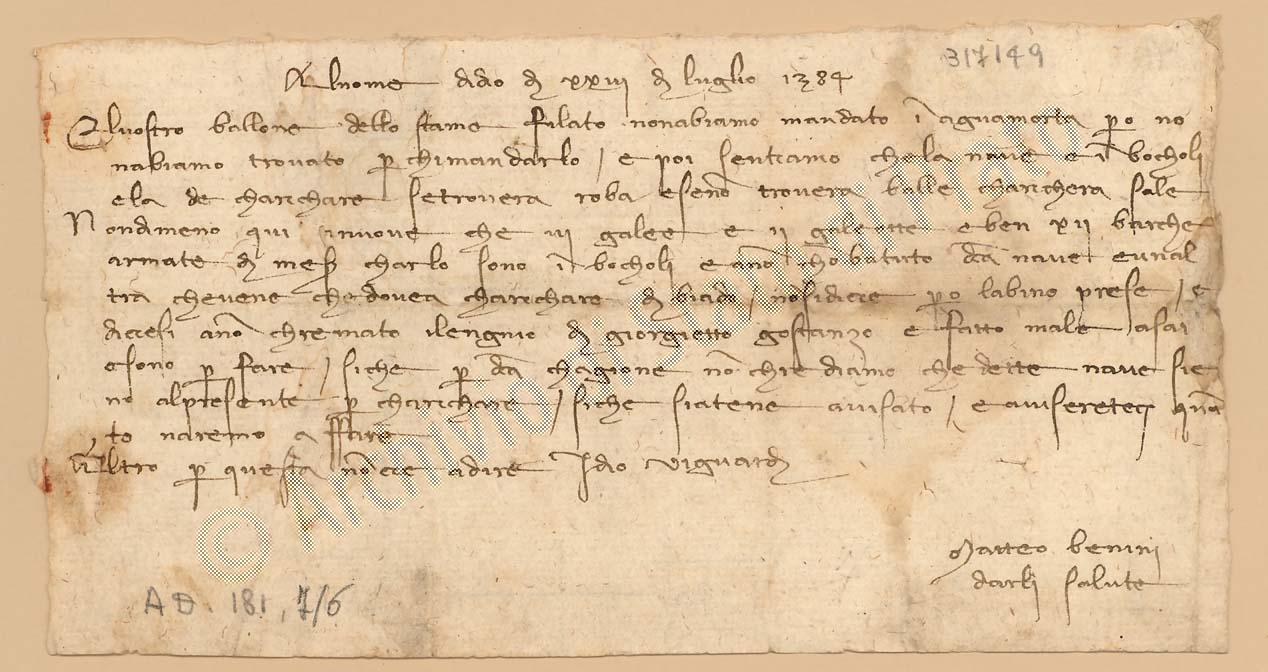 317149
Al nome di dio di xxvi di luglio 1384
El vostro ballone dello stame filato nonabiamo mandato i aguamorta p̱o no
nabiamo trovato p̱ chi mandarlo / e poi sentiamo chela nave e i bocholi
ela de charichare setrovera roba eseno trovera balle charichera sale
Nondimeno qui innove che iii galee e ii galeotte e ben xii barche
armate di meß charlo sono i bocholi e ano chobatuto da nave eunal
tra chevene chedovea charichare di biado / nosidicie p̱o labino prese / e
diciesi ano chremato ilengnio di giorgietto gostanzo e fatto male asai
esono p̱ fare / siche p̱ da chagione no chrediamo che dette nave sie
no alpresente p̱ charichare / siche siatene avisato / e avisereteci quan
to naremo a ffare
Altro p̱ questa no cie adire Idio viguardi
Matteo benini
darli salute
AD. 181, 7/6
© Archivio di Stato di Prato